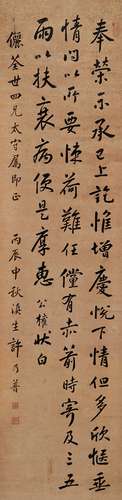 奉榮示承已上訖惟增慶悅下情但多欣愜垂
情問以所要悚荷難任儻有赤箭時寄及三五
兩以扶衰病便是厚惠 公權狀白
儷荃廿四兄太守屬即正 丙辰中秋滇生許乃普